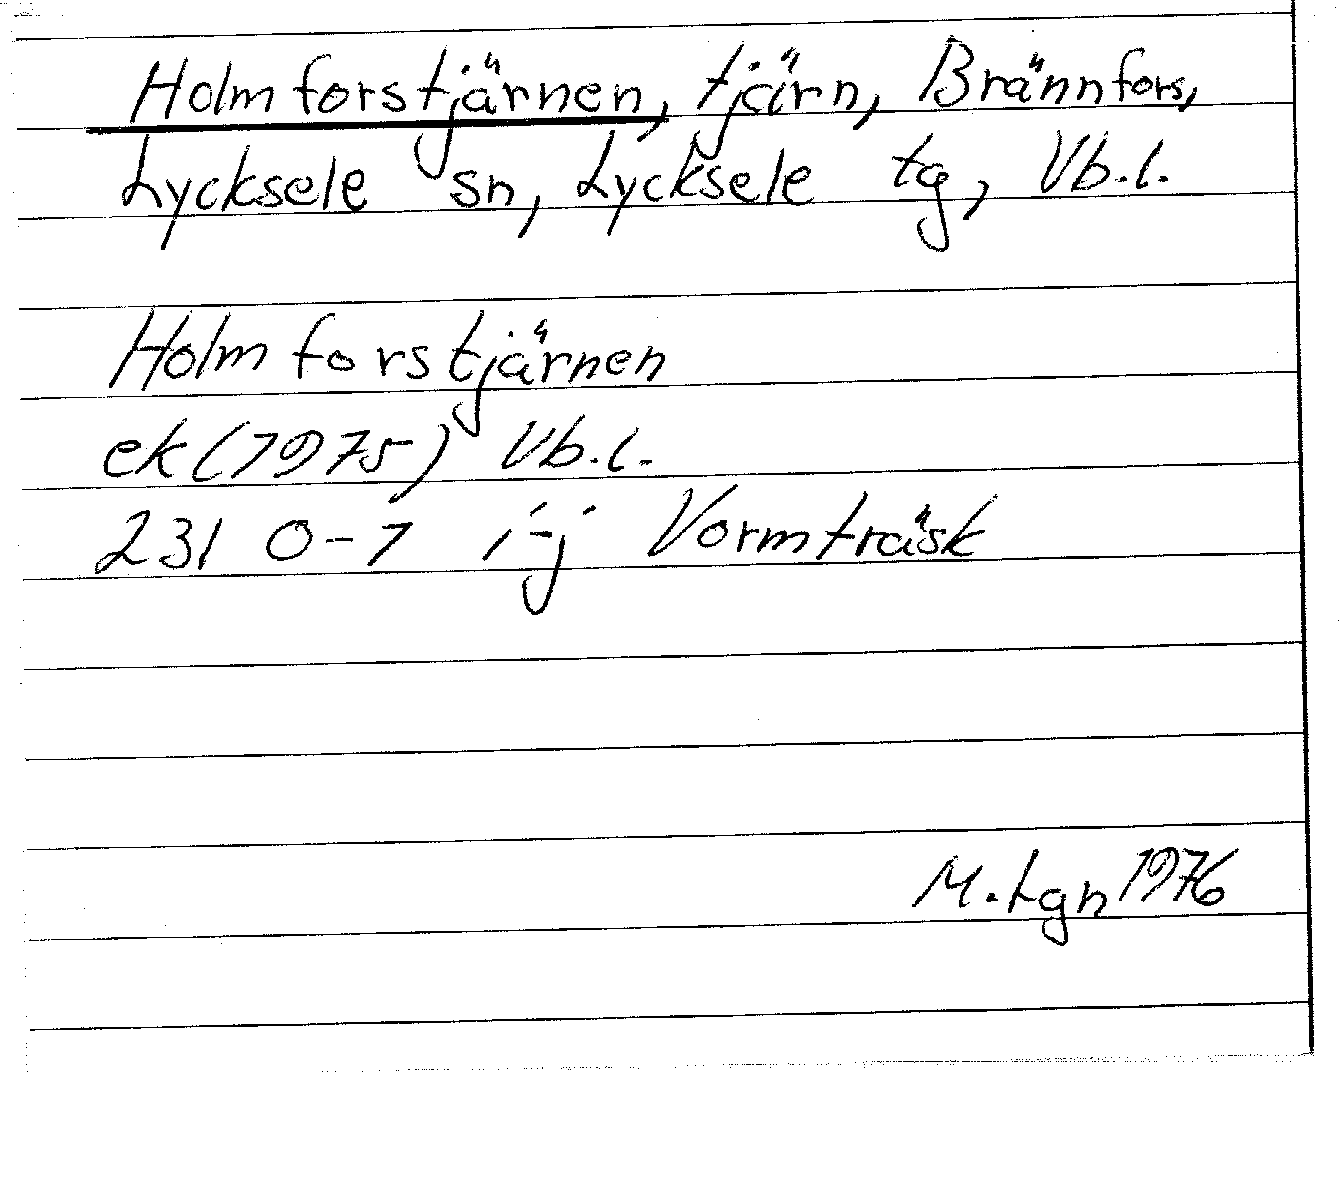 Holmforstjärnen, tjärn, Brännfors,
Lycksele sn, Lycksele tg, Vb.l.
Holmforstjärnen
ek(1975) Vb.l.
231 0-1 i-j Vormträsk
M.Lgn 1976